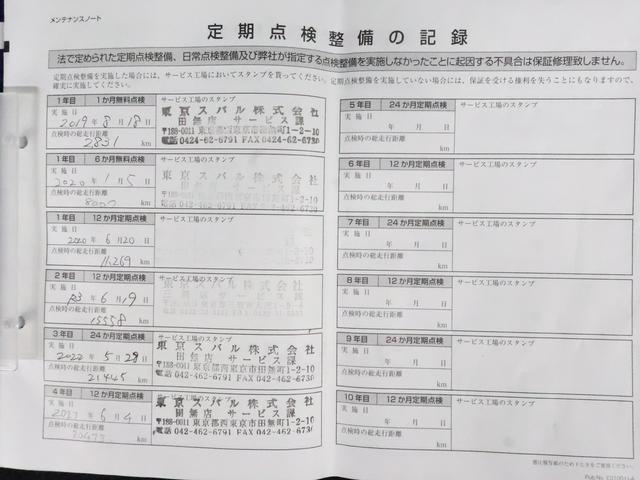 メンテナンスノート
定期点検整備の記録
法で定められた定期点検整備、日常点検整備及び弊社が指定する点検整備を実施しなかったことに起因する不具合は保証修理致しません。
定期点検整備を実施した場合には、サービス工場においてスタンプを貰ってください。定期点検整備を実施していない場合には、保証を受ける権利を失うことにもなりますので、
確実に実施してください。
1年目 1か月無料点検 サービス工場のスタンプ
実施日
2019年8月18日
点検時の総走行距離
2831 km
東京スバル株式会社
田無店 サービス課
〒188-0011 東京都西東京市田無町1-2-10
電話 0424-62-6791 FAX 0424-62-6730
1年目 6か月無料点検 サービス工場のスタンプ
実施日
2020年1月5日
点検時の総走行距離
8000 km
東京スバル株式会社
田無店 サービス課
〒188-0011 東京都西東京市田無町1-2-10
電話 042-462-6791 FAX 042-462-6730
1年目 12か月定期点検 サービス工場のスタンプ
実施日
2020年6月20日
点検時の総走行距離
11,269 km
2年目 12か月定期点検 サービス工場のスタンプ
実施日
R3年6月19日
点検時の総走行距離
15558 km
東京スバル株式会社
3年目 24か月定期点検 サービス工場のスタンプ
実施日
2022年5月29日
点検時の総走行距離
21445 km
東京スバル株式会社
田無店 サービス課
〒188-0011 東京都西東京市田無町1-2-10
電話 042-462-6791 FAX 042-462-6730
4年目 12か月定期点検 サービス工場のスタンプ
実施日
年6月4日
点検時の総走行距離
km
東京スバル株式会社
田無店 サービス課
〒188-0011 東京都西東京市田無町1-2-10
電話 042-462-6791 FAX 042-462-6730
5年目 24か月定期点検 サービス工場のスタンプ
実施日
年 月 日
点検時の総走行距離
km
6年目 12か月定期点検 サービス工場のスタンプ
実施日
年 月 日
点検時の総走行距離
km
7年目 24か月定期点検 サービス工場のスタンプ
実施日
年 月 日
点検時の総走行距離
km
8年目 12か月定期点検 サービス工場のスタンプ
実施日
年 月 日
点検時の総走行距離
km
9年目 24か月定期点検 サービス工場のスタンプ
実施日
年 月 日
点検時の総走行距離
km
10年目 12か月定期点検 サービス工場のスタンプ
実施日
年 月 日
点検時の総走行距離
km